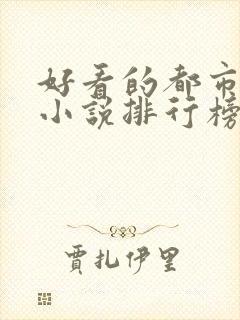 好看的都市
小说排行榜
贾扎伊里